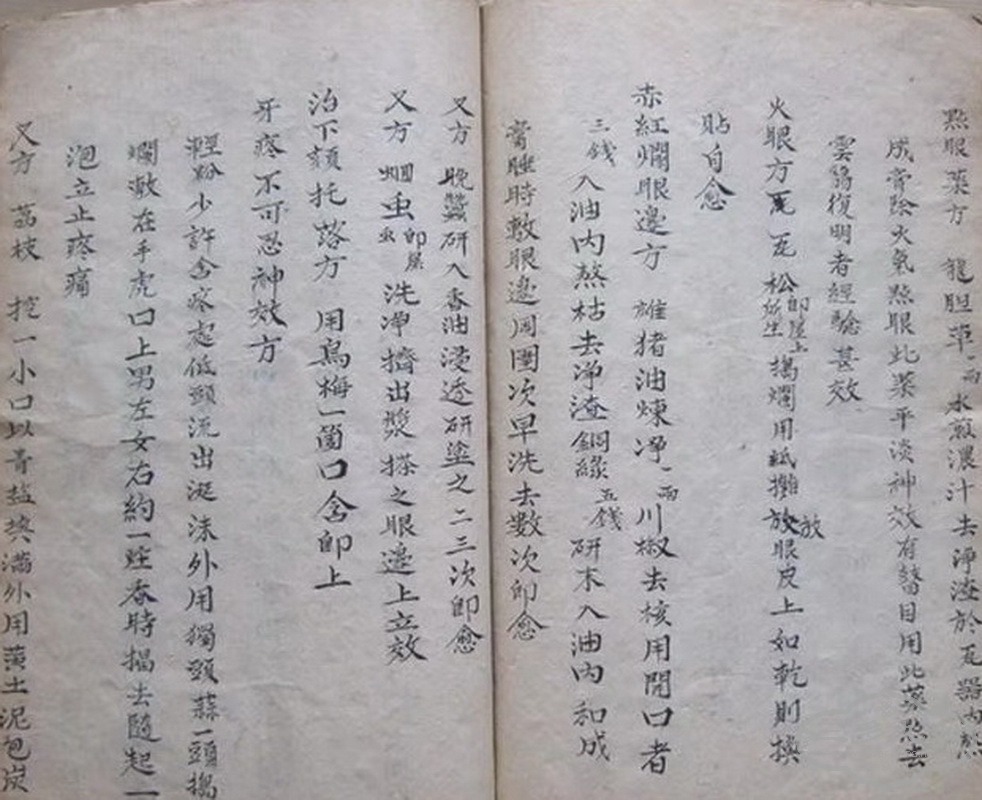 點眼藥方 龍胆草一兩水煎濃汁去淨渣於瓦器內熬
成膏除火氣點眼此藥平淡神效有瞽目用此藥點去
雲翳復明者經驗甚效
火眼方 瓦松即屋上所生搗爛用紙攤放眼皮上如乾則換
貼自愈
赤紅爛眼邊方 雄猪油煉淨一兩川椒去核用開口者
三錢入油內熬枯去淨渣銅綠五錢研末入油內和成
膏睡時敷眼邊周圍次早洗去數次即愈
又方 晚蠶研入香油浸透研塗之二三次即愈
又方 蟈虫即屎虫洗淨擠出漿搽之眼邊上立效
治下頦托落方 用烏梅一箇口含即上
牙疼不可忍神效方
輕粉少許含疼處低頭流出涎沫外用獨頭蒜一頭搗
爛敷在手虎口上男左女右約一炷香時揭去隨起一
泡立止疼痛
又方 荔枝 挖一小口以青鹽填滿外用黃土泥包炭